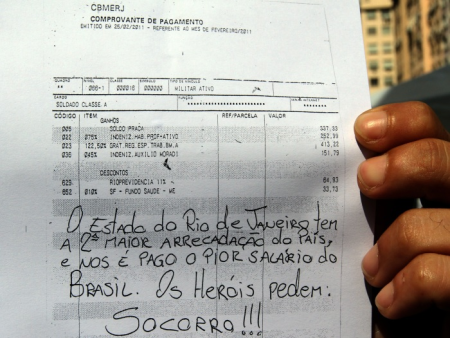 CBMERJ
COMPROVANTE DE PAGAMENTO
EMITIDO EM 25/02/2011 - REFERENTE AO MES DE FEVEREIRO/2011
QUADRO NIVEL CLASSE SIMBOLO TIPO DE VINCULO
** 066-1 000016 000000 MILITAR ATIVO
CARGO FUNÇÃO
SOLDADO CLASSE A
CÓDIGO ITEM REF/PARCELA VALOR
GANHOS
005 SOLDO PRACA 337,33
022 075% INDENIZ.HAB.PROF-ATIVO 252,99
023 122,50% GRAT.REG.ESP.TRAB.BM.A 413,22
036 045% INDENIZ.AUXILIO MORADI 151,79
DESCONTOS
625 RIOPREVIDENCIA 11% 64,93
652 010% SF - FUNDO SAUDE - ME 33,73
O ESTADO do RIO de JANEIRO tem
A 2ª MAIOR ARRECADAÇÃO do PAÍS,
e NOS É PAGO O PIOR SALÁRIO do
BRASIL. OS HERÓIS PEDEM:
SOCORRO!!!